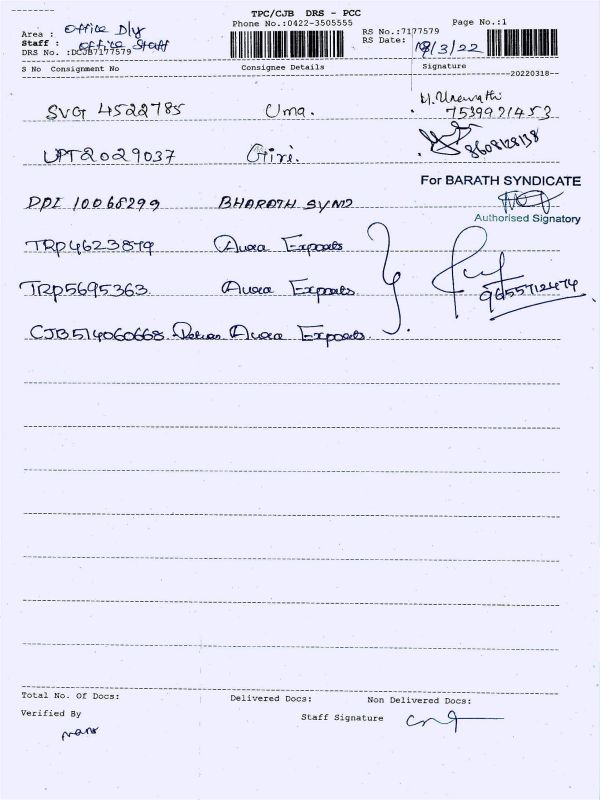 TPC/CJB DRS - PCC
Phone No.:0422-3505555
Page No.:1
Area : Office Dly
RS No.:7177579
Staff : Office Staff
RS Date: 18/3/22
DRS No. :DCJB7177579
S No Consignment No Consignee Details Signature
20220318
SVG 4522785 Uma. 7539921453
UPT2029037 Giri. 8608128138
For BARATH SYNDICATE
DDI 10068299 BHARATH SYND
Authorised Signatory
TRP4623879 Aura Exports
TRP5695363 Aura Exports 9655712474
CJB514060668 Aura Exports.
Total No. Of Docs: Delivered Docs: Non Delivered Docs:
Verified By Staff Signature